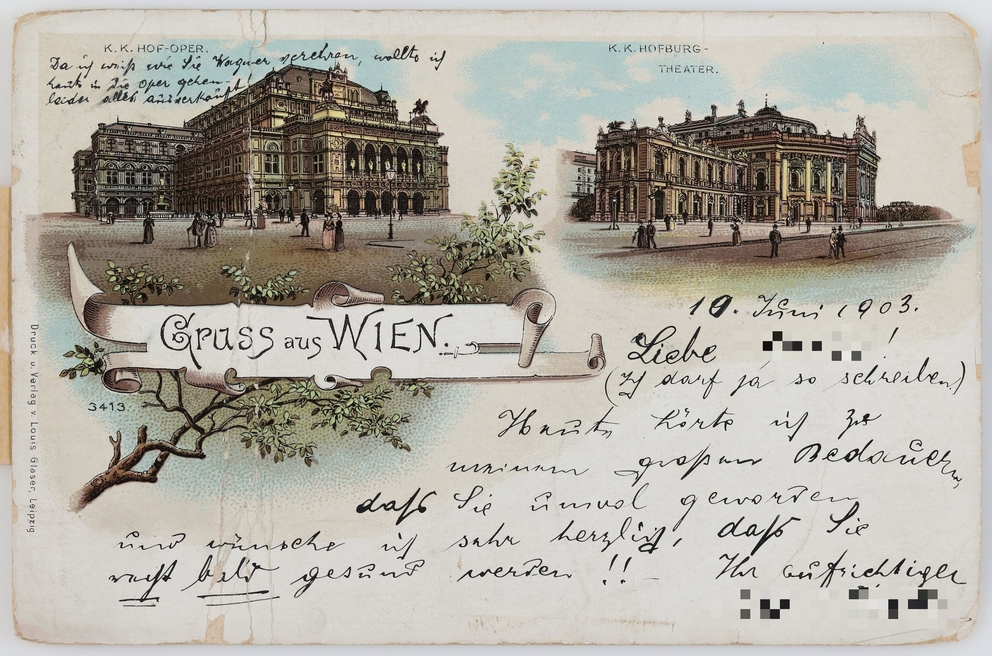 K. K. HOF-OPER.
Da ich weiß wie Sie Wagner verehren, wollte ich
heute in die Oper gehen -
leider alles ausverkauft!
K. K. HOFBURG-
THEATER.
Gruss aus WIEN.
3413
Druck u. Verlag v. Louis Glaser, Leipzig
19. Juni 1903.
Liebe !
(Ich darf ja so schreiben)
Heute hörte ich zu
meinem großen Bedauern,
daß Sie unwol geworden
und wünsche ich sehr herzlich, daß Sie
recht bald gesund werden!! Ihr aufrichtiger